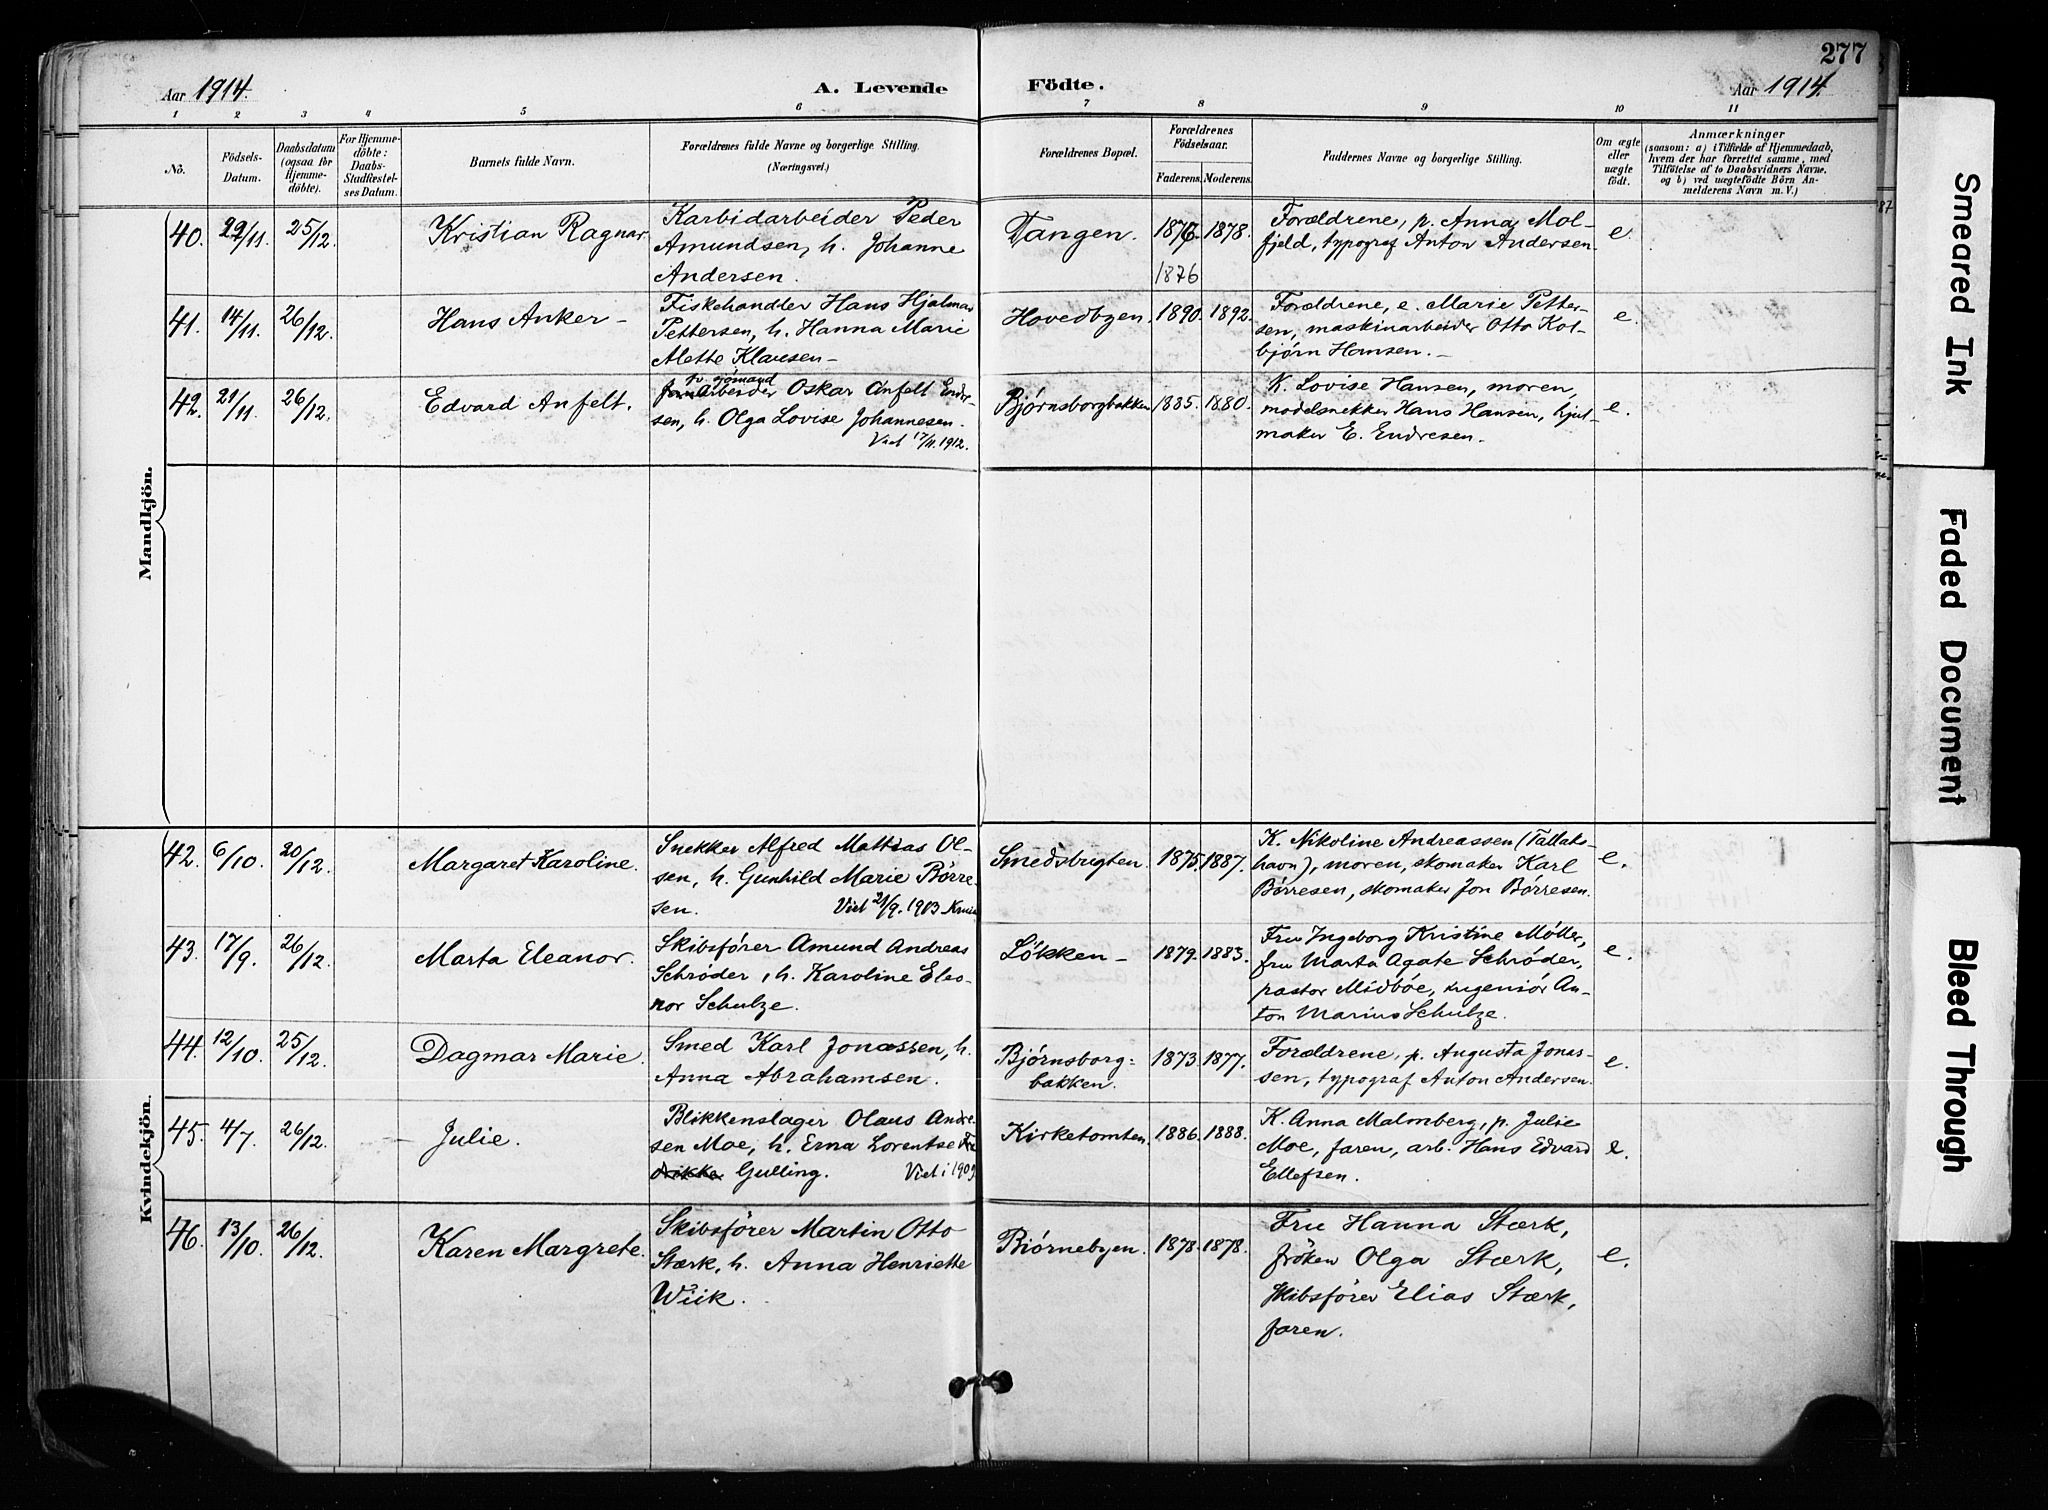 277
Aar 1914.
A. Levende
Födte.
Aar 1914.
1 2 3 4 5 6 7 8 9 10 11
No.
Födsels-
Datum.
Daabsdatum
(ogsaa for
Hjemme-
döbte).
For Hjemme-
döbte:
Daabs-
Stadfæstel-
ses Datum.
Barnets fulde Navn.
Forældrenes fulde Navne og borgerlige Stilling.
(Næringsvei.)
Forældrenes Bopæl.
Forældrenes
Födselsaar.
Faderens. Moderens.
Faddernes Navne og borgerlige Stilling.
Om ægte
eller
uægte
födt.
Anmærkninger
(saasom: a) i Tilfælde af Hjemmedaab,
hvem der har forrettet samme, med
Tilföielse af to Daabsvidners Navne,
og b) ved uægtefödte Börn An-
melderens Navn m. V.)
Mandkjön.
40. 29/11. 25/12. Kristian Ragnar
Karbidarbeider Peder
Amundsen, h. Johanne
Andersen.
Tangen. 1876. 1878.
1876
Forældrene, p. Anna Mol-
fjeld, typograf Anton Andersen
e.
41. 14/11. 26/12. Hans Anker -
Fiskehandler Hans Hjalmar
Pettersen, h. Hanna Marie
Alette Klausen -
Hovedbyen. 1890. 1892.
Forældrene, e. Marie Petter-
sen, maskinarbeider Otto Kol-
björn Hansen. -
e.
42. 21/11. 26/12. Edvard Anfelt.
sjömand
arbeider Oskar Anfelt Endre-
sen, h. Olga Lovise Johannesen.
Viet 17/11. 1912.
Bjørnsborgbakken 1885. 1880.
K. Lovise Hansen, moren,
modelsnekker Hans Hansen, hjul-
maker E. Endresen.
e.
Kvindekjön.
42. 6/10. 20/12. Margaret Karoline.
Snekker Alfred Mattias Ol-
sen, h. Gunhild Marie Børre-
sen. Viet 21/9. 1903
Smedsbugten. 1875. 1887.
K. Nikoline Andreassen (Tallaks-
havn), moren, skomaker Karl
Børresen, skomaker Jon Børresen.
e.
43. 17/9. 26/12. Marta Eleanor.
Skibsfører Amund Andreas
Schrøder, h. Karoline Eleo-
nor Schulze.
Løkken - 1879. 1883.
Fru Ingeborg Kristine Møller,
fru Marta Agate Schrøder,
pastor Midbøe, ingeniør An-
ton Marius Schulze.
e.
44. 12/10. 25/12. Dagmar Marie.
Smed Karl Jonassen, h.
Anna Abrahamsen.
Bjørnsborg-
bakken. 1873. 1877.
Forældrene, p. Augusta Jonas-
sen, typograf Anton Andersen.
e.
45. 4/7. 26/12. Julie.
Blikkenslager Olaus Andre-
sen Moe, h. Erna Lorentse Fre
drikke Gulling. Viet i 1909
Kirketomten 1886. 1888.
K. Anna Malmberg, p. Julie
Moe, faren, arb. Hans Edvard
Ellefsen.
e.
46. 13/10. 26/12. Karen Margrete.
Skibsfører Martin Otto
Stærk, h. Anna Henriette
Wiik.
Bjørnebyen. 1878. 1878.
Fru Hanna Stærk,
frøken Olga Stærk,
skibsfører Elias Stærk,
faren.
e.
Smeared Ink
Faded Document
Bleed Through